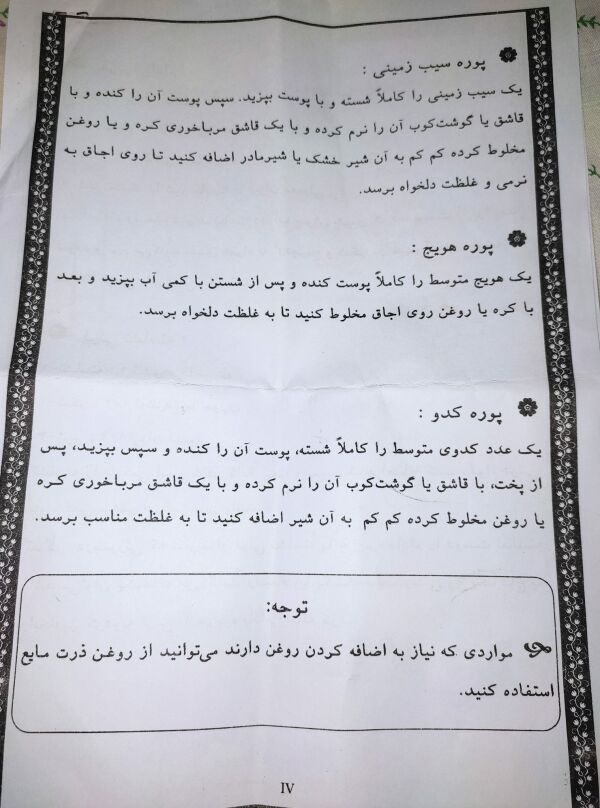 پوره سیب زمینی :
یک سیب زمینی را کاملاً شسته و با پوست بپزید. سپس پوست آن را کنده و با
قاشق یا گوشت‌کوب آن را نرم کرده و با یک قاشق مرباخوری کره و یا روغن
مخلوط کرده کم کم به آن شیر خشک یا شیرمادر اضافه کنید تا روی اجاق به
نرمی و غلظت دلخواه برسد.
پوره هویج :
یک هویج متوسط را کاملاً پوست کنده و پس از شستن با کمی آب بپزید و بعد
با کره یا روغن روی اجاق مخلوط کنید تا به غلظت دلخواه برسد.
پوره کدو :
یک عدد کدوی متوسط را کاملاً شسته، پوست آن را کنده و سپس بپزید، پس
از پخت، با قاشق یا گوشت‌کوب آن را نرم کرده و با یک قاشق مرباخوری کره
یا روغن مخلوط کرده کم کم به آن شیر اضافه کنید تا به غلظت مناسب برسد.
توجه:
مواردی که نیاز به اضافه کردن روغن دارند می‌توانید از روغن ذرت مایع
استفاده کنید.
IV